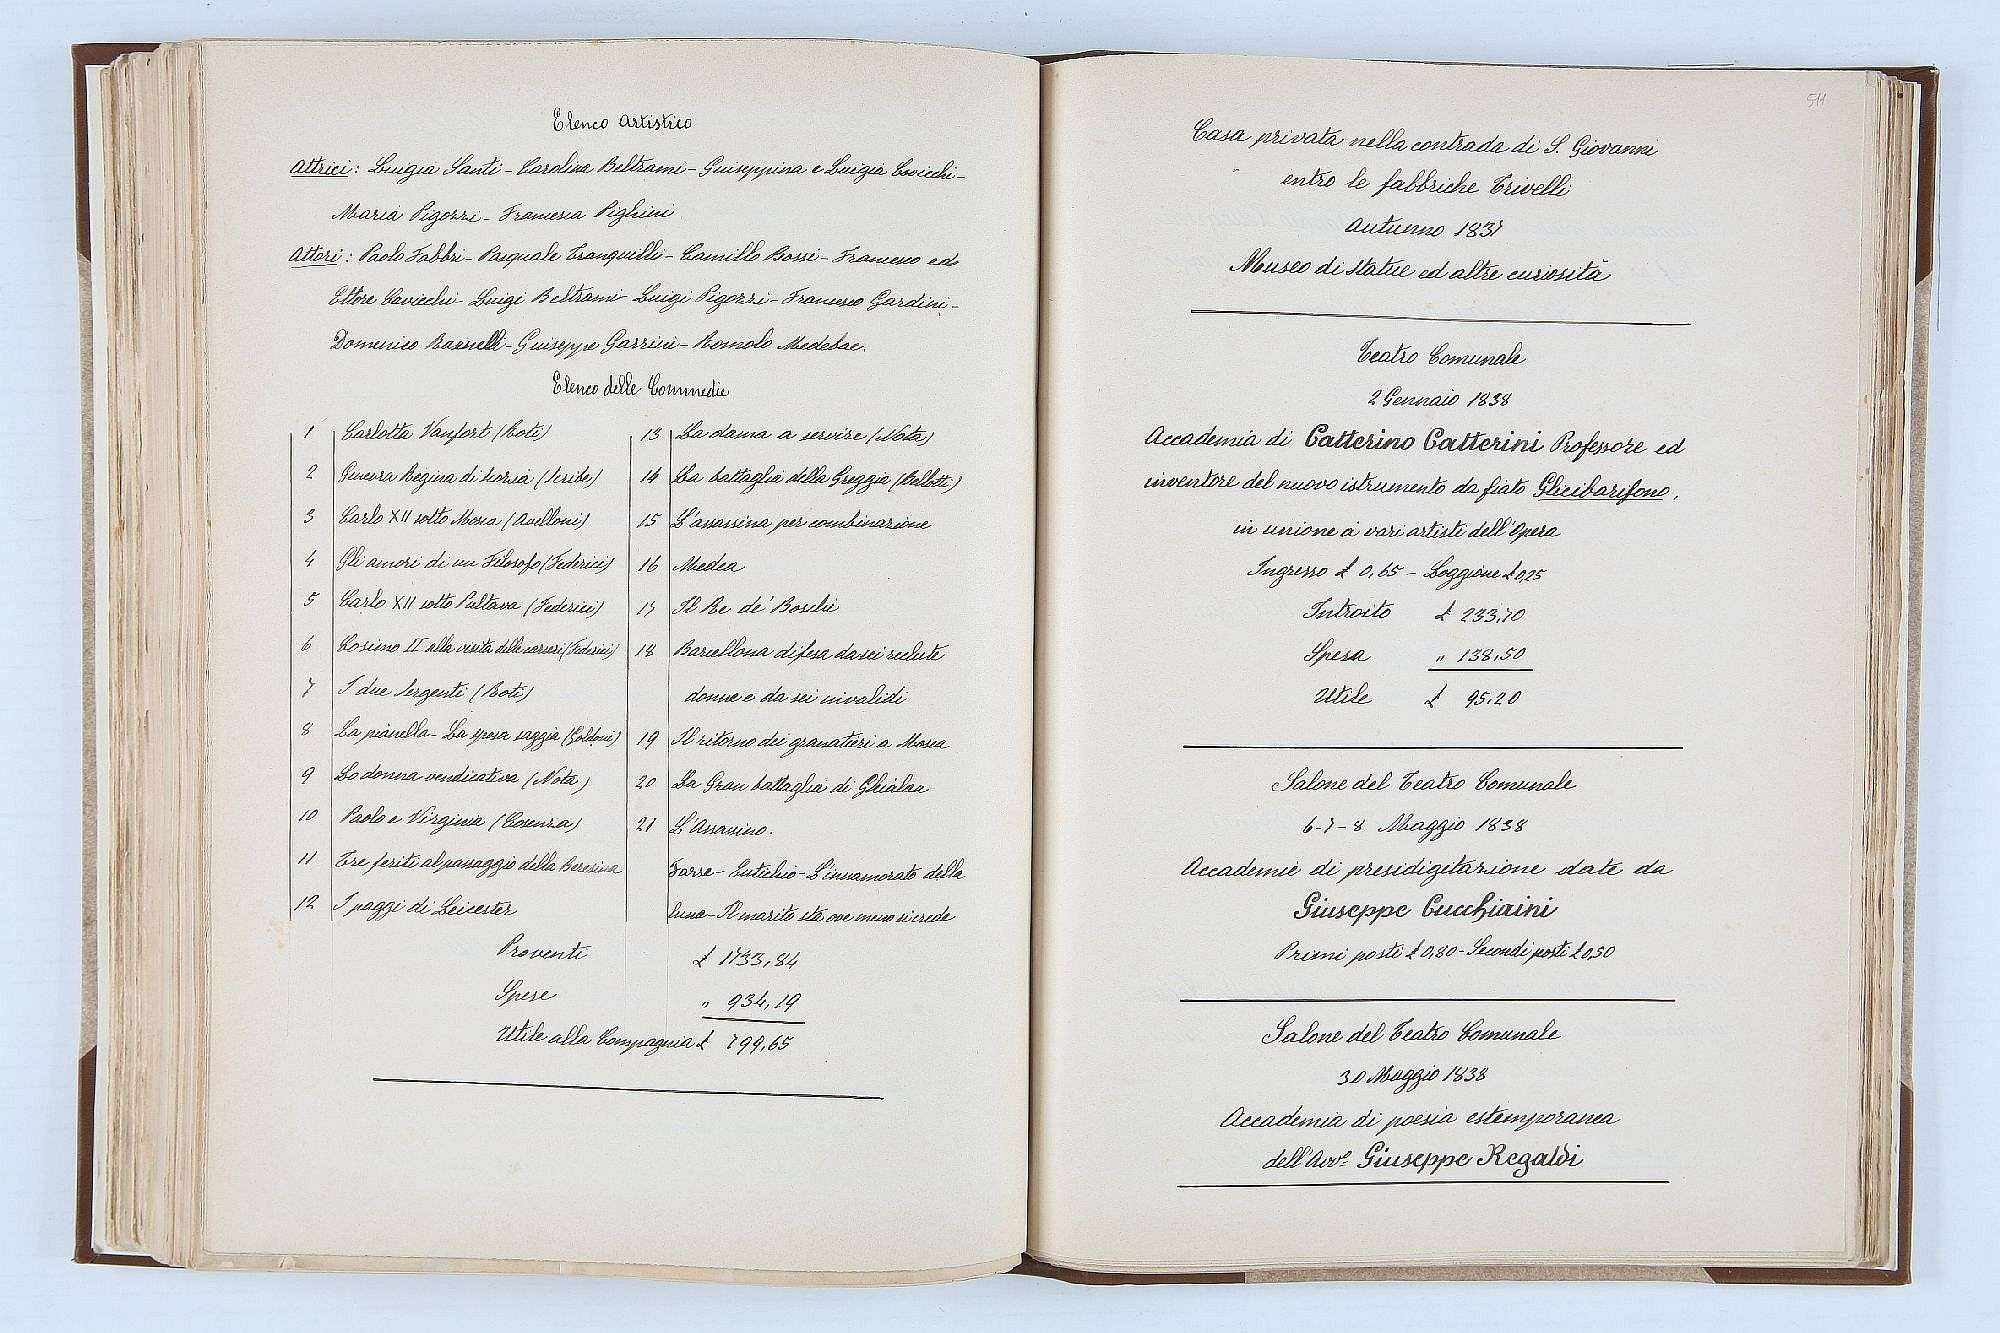 Elenco artistico
Attrici: Luigia Santi - Carolina Beltrami - Guiseppina e Luigia Covicchi -
Maria Pigozzi - Francesca Pighini
Attori: Paolo Fabbri - Pasquale Tranquilli - Camillo Bossi - Francesco ed
Ettore Cavicchi - Luigi Beltrami - Luigi Pigozzi - Francesco Gardini -
Domenico - Guiseppe Garzini - Romolo Medebac.
Elenco delle Commedie
1 Carlotta Vanfort (Roti)
2 Ginevra Regina di Scozia (Scribe)
3 Carlo XII sotto Mosca (Avelloni)
4 Gli amori di un Filosofo (Federici)
5 Carlo XII sotto Pultava (Federici)
6 Cosimo II alla visita delle carceri (Federici)
7 I due Sergenti (Roti)
8 La pianella - La sposa saggia (Goldoni)
9 La donna vendicativa (Nota)
10 Paolo e Virginia (Cosenza)
11 Tre feriti al passaggio della Beresina
12 I paggi di Leicester
13 La dama a servire (Nota)
14 La battaglia della Greggia (Bellotti)
15 L'assassina per combinazione
16 Medea
17 Il Re de' Boschi
18 Barcellona difesa da sei reclute
donne e da sei invalidi
19 Il ritorno dei granatieri a Mosca
20 La Gran battaglia di Ghialva
21 L'Assassino.
Farse - Eutichio - L'innamorato della
luna - Il marito sta ove meno si crede
Proventi £ 1733,84
Spese " 934,19
Utile alla Compagnia £ 799,65
511
Casa privata nella contrada di S. Giovanni
entro le fabbriche Trivelli
Autunno 1837
Museo di statue ed altre curiosità
Teatro Comunale
2 Gennaio 1838
Accademia di Catterino Catterini Professore ed
inventore del nuovo istrumento da fiato Glicibarifono,
in unione a vari artisti dell'Opera
Ingresso £ 0,65 - Loggione £ 0,25
Introito £ 233,70
Spesa " 138,50
Utile £ 95,20
Salone del Teatro Comunale
6-7-8 Maggio 1838
Accademie di presidigitazione date da
Giuseppe Cucchiaini
Primi posti £ 0,80 - Secondi posti £ 0,50
Salone del Teatro Comunale
30 Maggio 1838
Accademia di poesia estemporanea
dell'Avv.º Giuseppe Regaldi